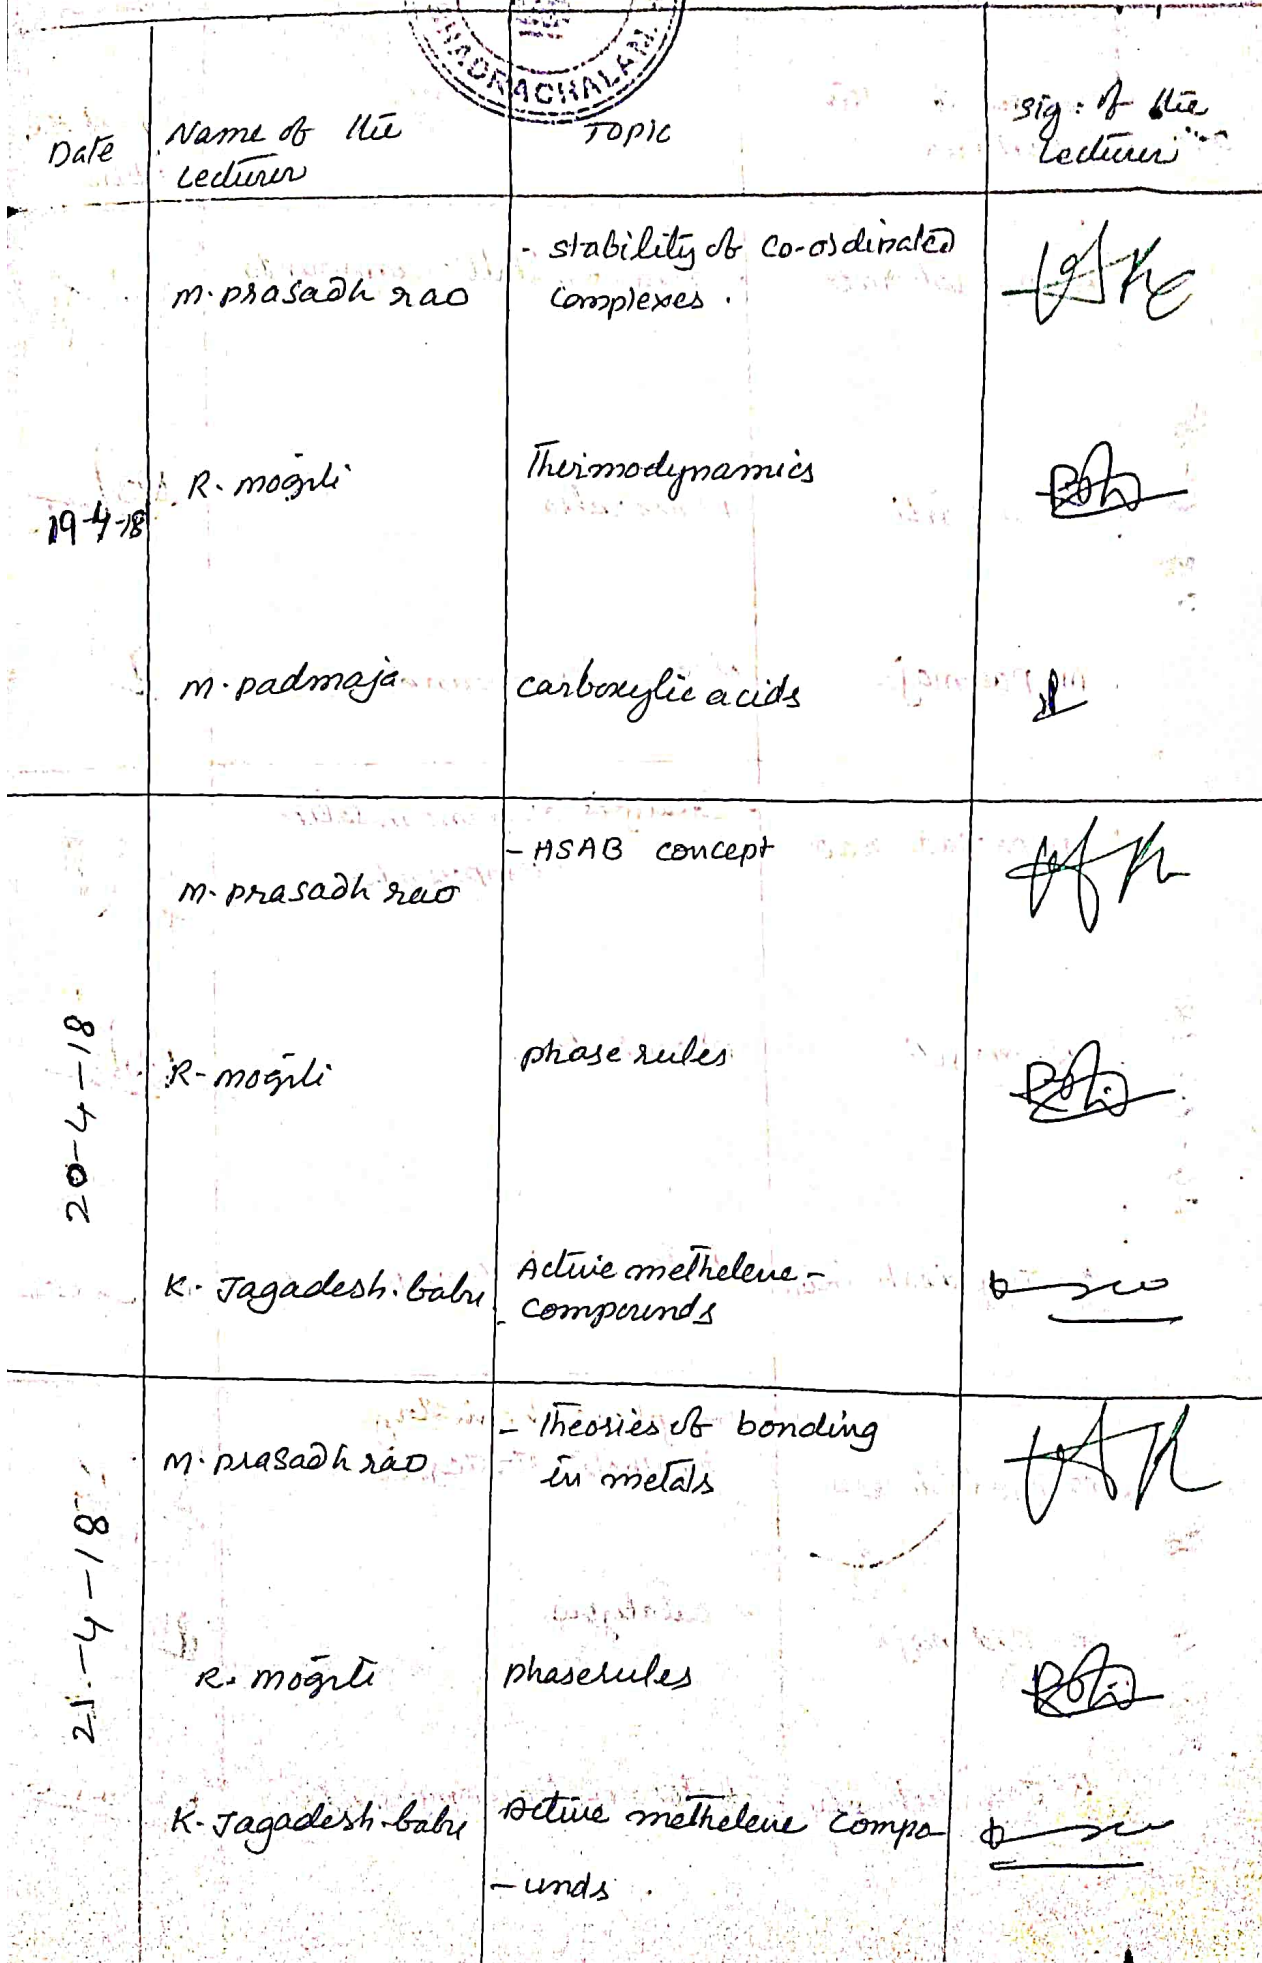 HADRACHALAM
Date
Name of the
Lecturer
Topic
sig: of the
Lecturer
19-4-18
M. prasadh rao
- stability of co-ordinated
complexes.
R. mogili
Thermodynamics
M. padmaja
carboxylic acids
20-4-18
M. prasadh rao
- HSAB concept
R- mogili
phase rules
K. Jagadesh. babu
Active methelene -
compounds
21-4-18
M. prasadh rao
- Theories of bonding
in metals
R. mogili
phaserules
K. Jagadesh-babu
Active methelene compo
- unds.